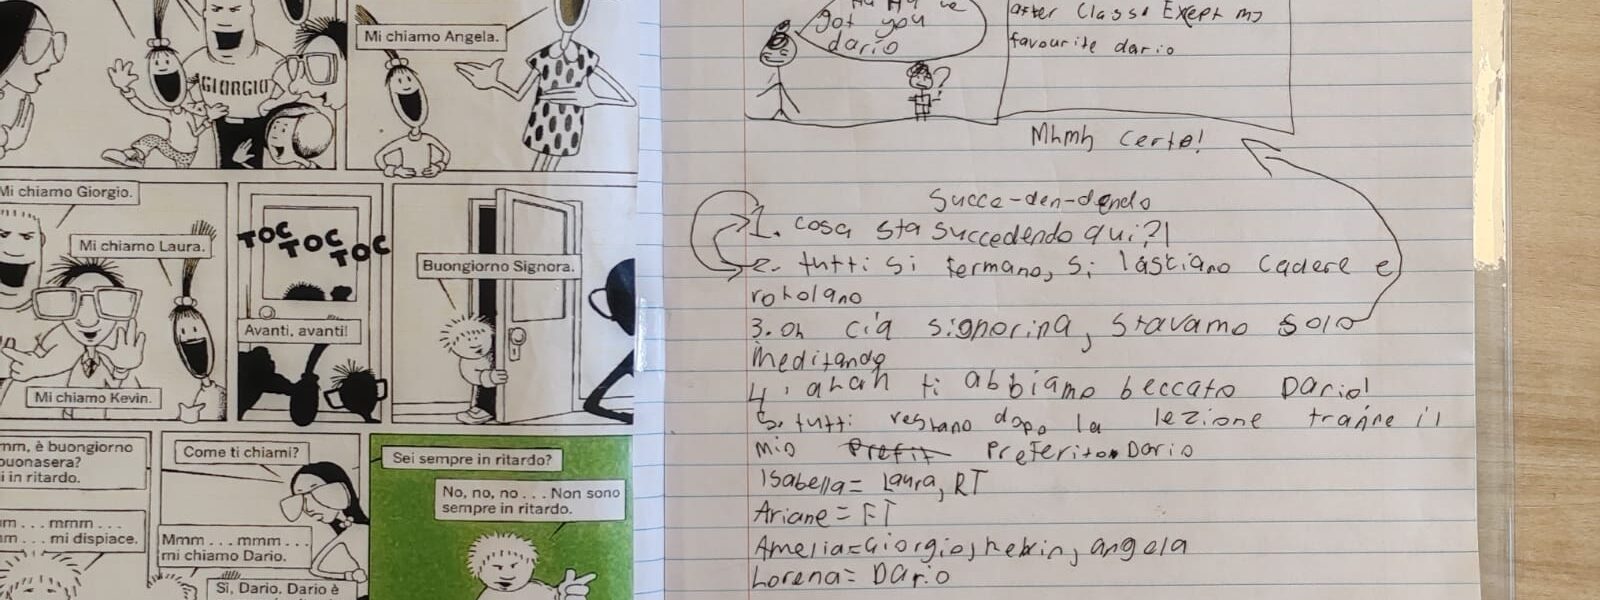 Mi chiamo Angela.
GIORGIO
Mi chiamo Giorgio.
Mi chiamo Laura.
Mi chiamo Kevin.
TOC TOC TOC
Avanti, avanti!
Buongiorno Signora.
mm, è buongiorno
buonasera?
i in ritardo.
m . . . mmm . . .
m . . . mi dispiace.
Come ti chiami?
Mmm . . . mmm . . .
mi chiamo Dario.
Sì, Dario. Dario è
Sei sempre in ritardo?
No, no, no . . . Non sono
sempre in ritardo.
got you
dario
?
after Class. Except my
favourite dario
Mhmh certo!
Succe-den-dendo
1. cosa sta succedendo qui?!
2. tutti si fermano, si lasciano cadere e
rotolano
3. oh cia signorina, stavamo solo
meditando
4. ahah ti abbiamo beccato Dario!
5. tutti restano dopo la lezione tranne il
mio Prefit Preferito Dario
Isabella = Laura, RT
Ariane = FT
Amelia = Giorgio, kevin, angela
Lorena = Dario